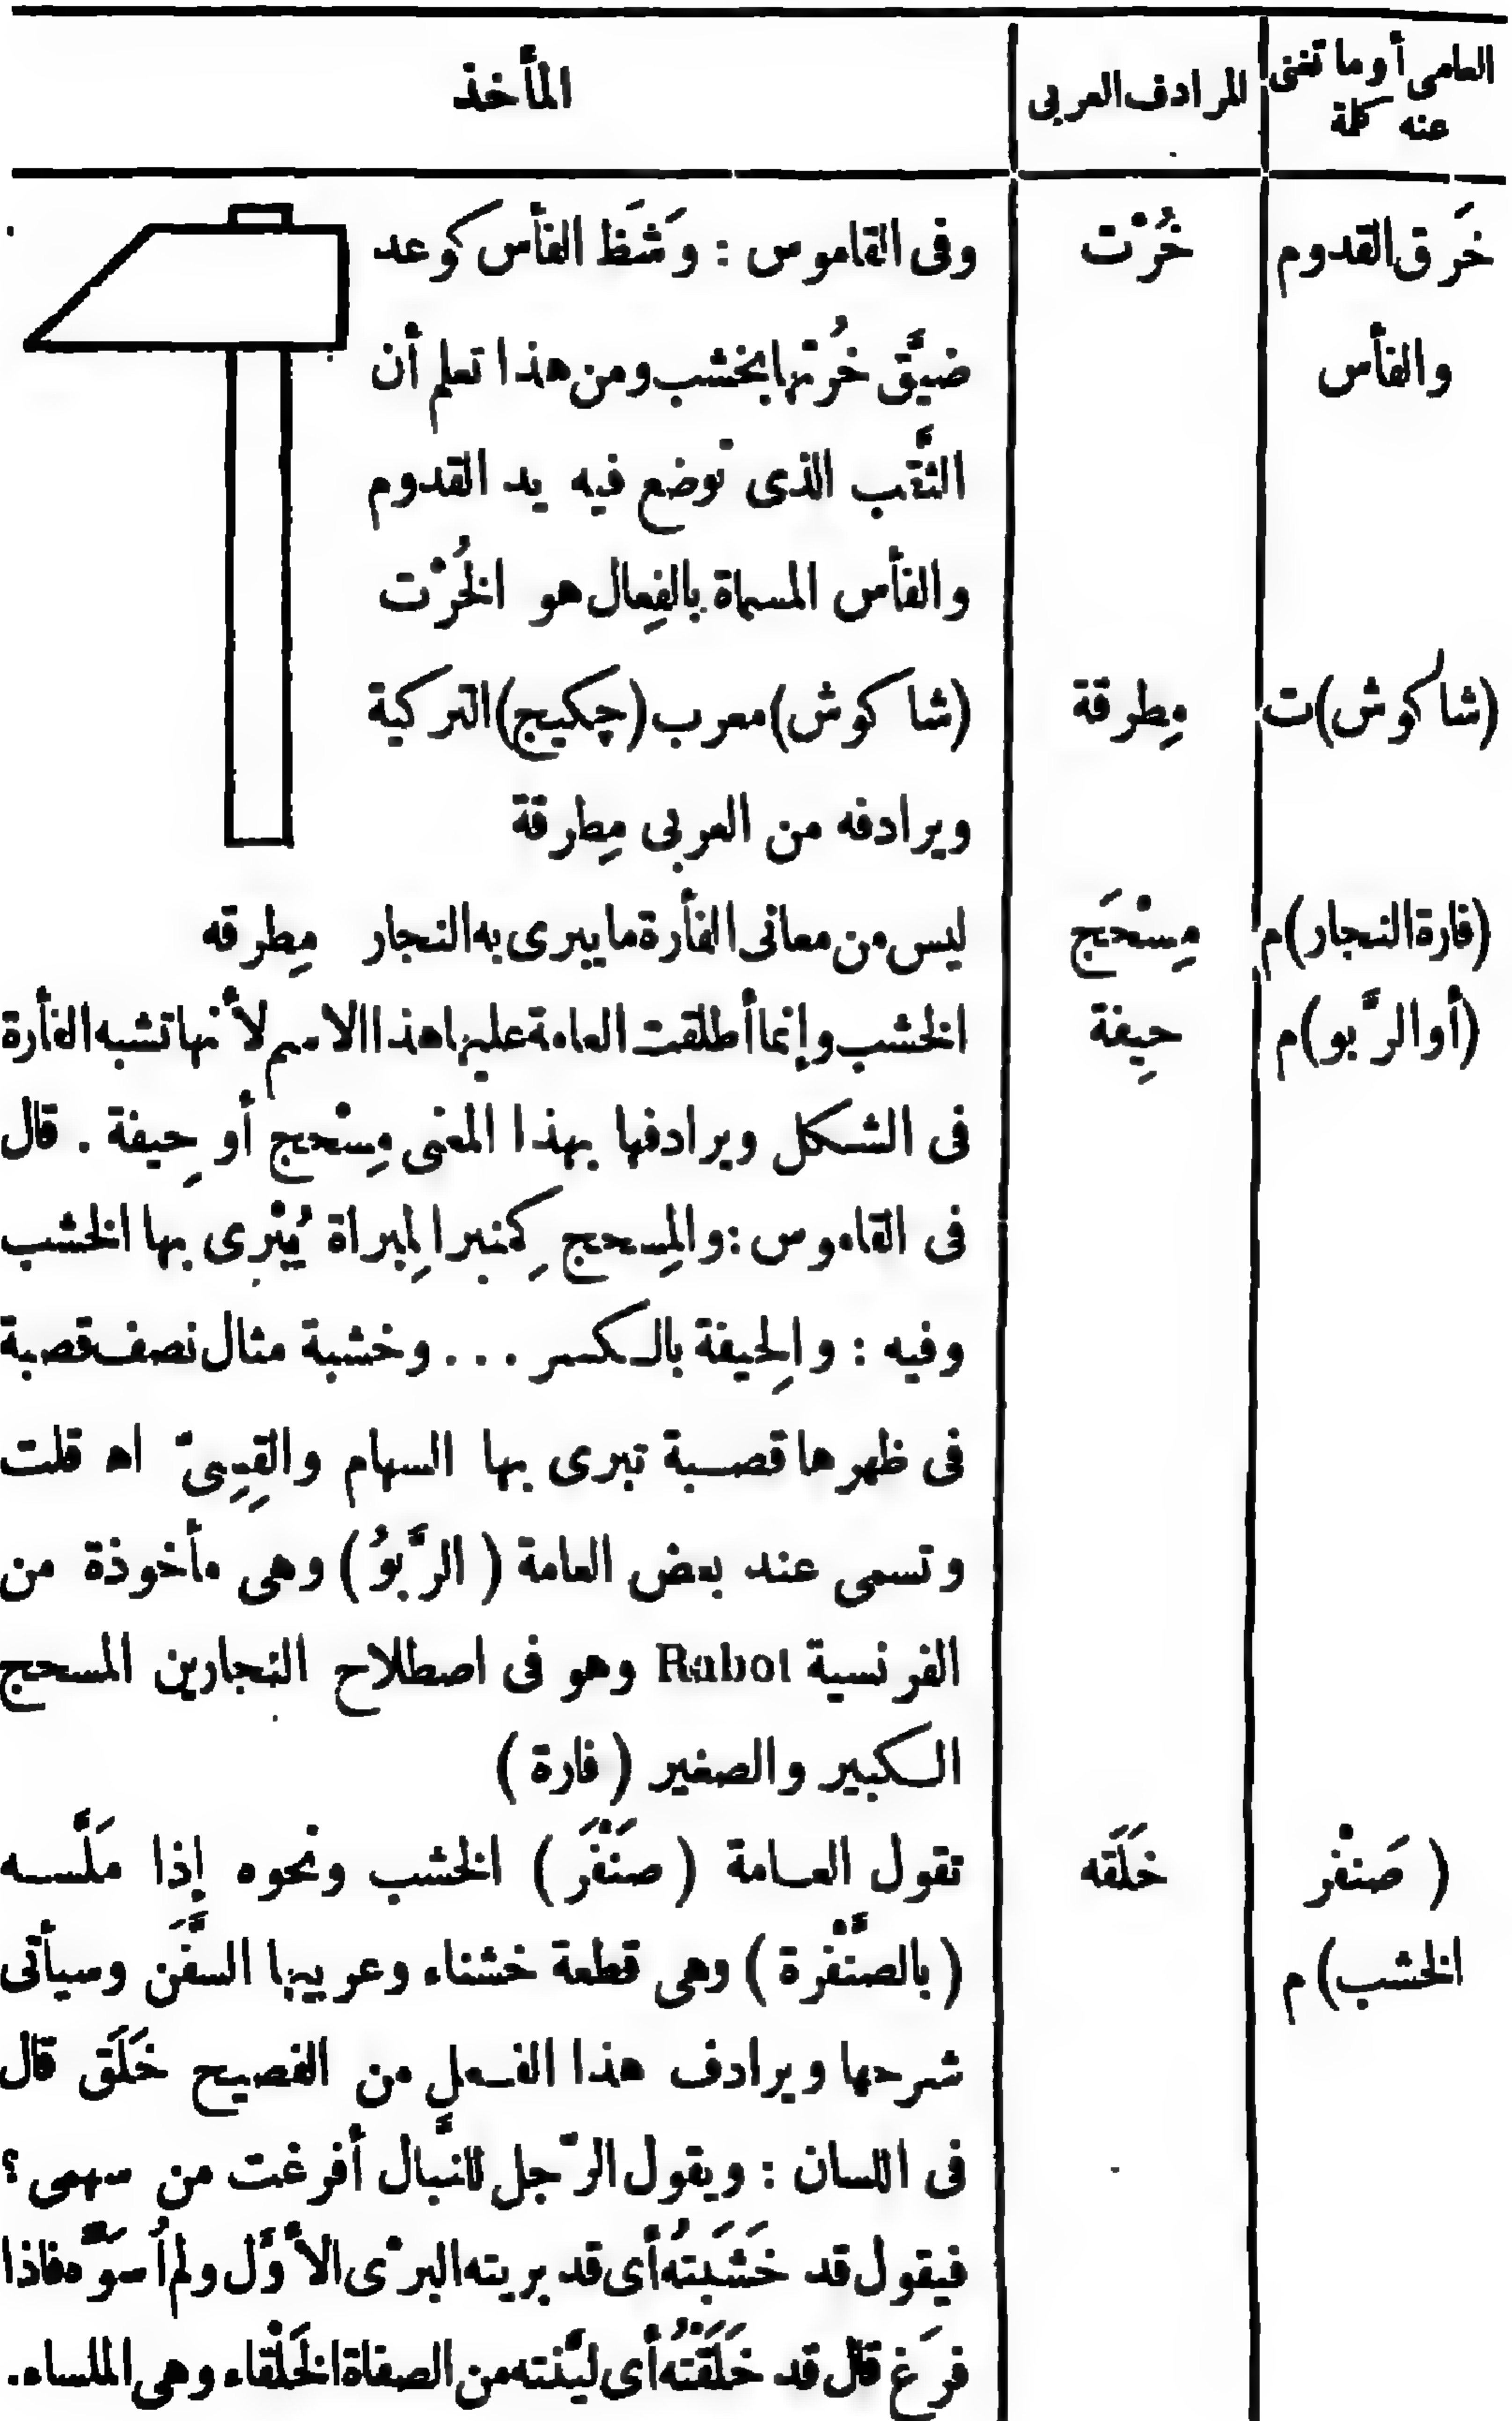 العامى أو ما تغنى عنه كلمة | المرادف العربى | المأخذ
خَرق القدوم | خُرْت | وفى القاموس : وَشَظَ الفأس كوعد
والفأس | ضيَّق خُرْتها بخشب ومن هذا تعلم أن
الثَّقب الذى توضع فيه يد القدوم
والفأس المسماة بالفِعال هو الخُرْت
(شاكوش) ت | مِطرقة | (شاكوش) معرب (چكيج) التركية
ويرادفه من العربى مِطرقة
(فارة النجار) م | مِسْحَج | ليس من معانى الفأرة ما يبرى به النجار مِطرقه
(أو الرَّبو) م | حِيفة | الخشب وإنما أطلقت العامة عليها هذا الاسم لأنها تشبه الفأرة
فى الشكل ويرادفها بهذا المعنى مِسْحج أو حِيفة . قال
فى القاموس : والمِسحج كِمنبر المِبراة يُبْرى بها الخشب
وفيه : والحِيفة بالكسر ... وخشبة مثال نصف قصبة
فى ظهرها قصبة تبرى بها السهام والقِسِىّ اه قلت
وتسمى عند بعض العامة ( الرَّبوُ ) وهى مأخوذة من
الفرنسية Rabot وهو فى اصطلاح النجارين المسحج
الكبير والصغير ( فارة )
( صَنْفر | خَلَقه | تقول العامة ( صَنْفَر ) الخشب ونحوه إذا مَلَّسه
الخشب ) م | ( بالصَّنْفرة ) وهى قطعة خشناء وعربيها السَّفَن وسيأتى
شرحها ويرادف هذا الفعل من الفصيح خَلَق قال
فى اللسان : ويقول الرّجل للنبَّال أفرغت من سهمى ؟
فيقول قد خَشَبتُه أى قد بريته البرْى الأوَّل ولم أُسَوّه فاذا
فرَغ قال قد خَلَقْتُه أى ليَّنته من الصفاة الخَلْقاء وهى الملساء.